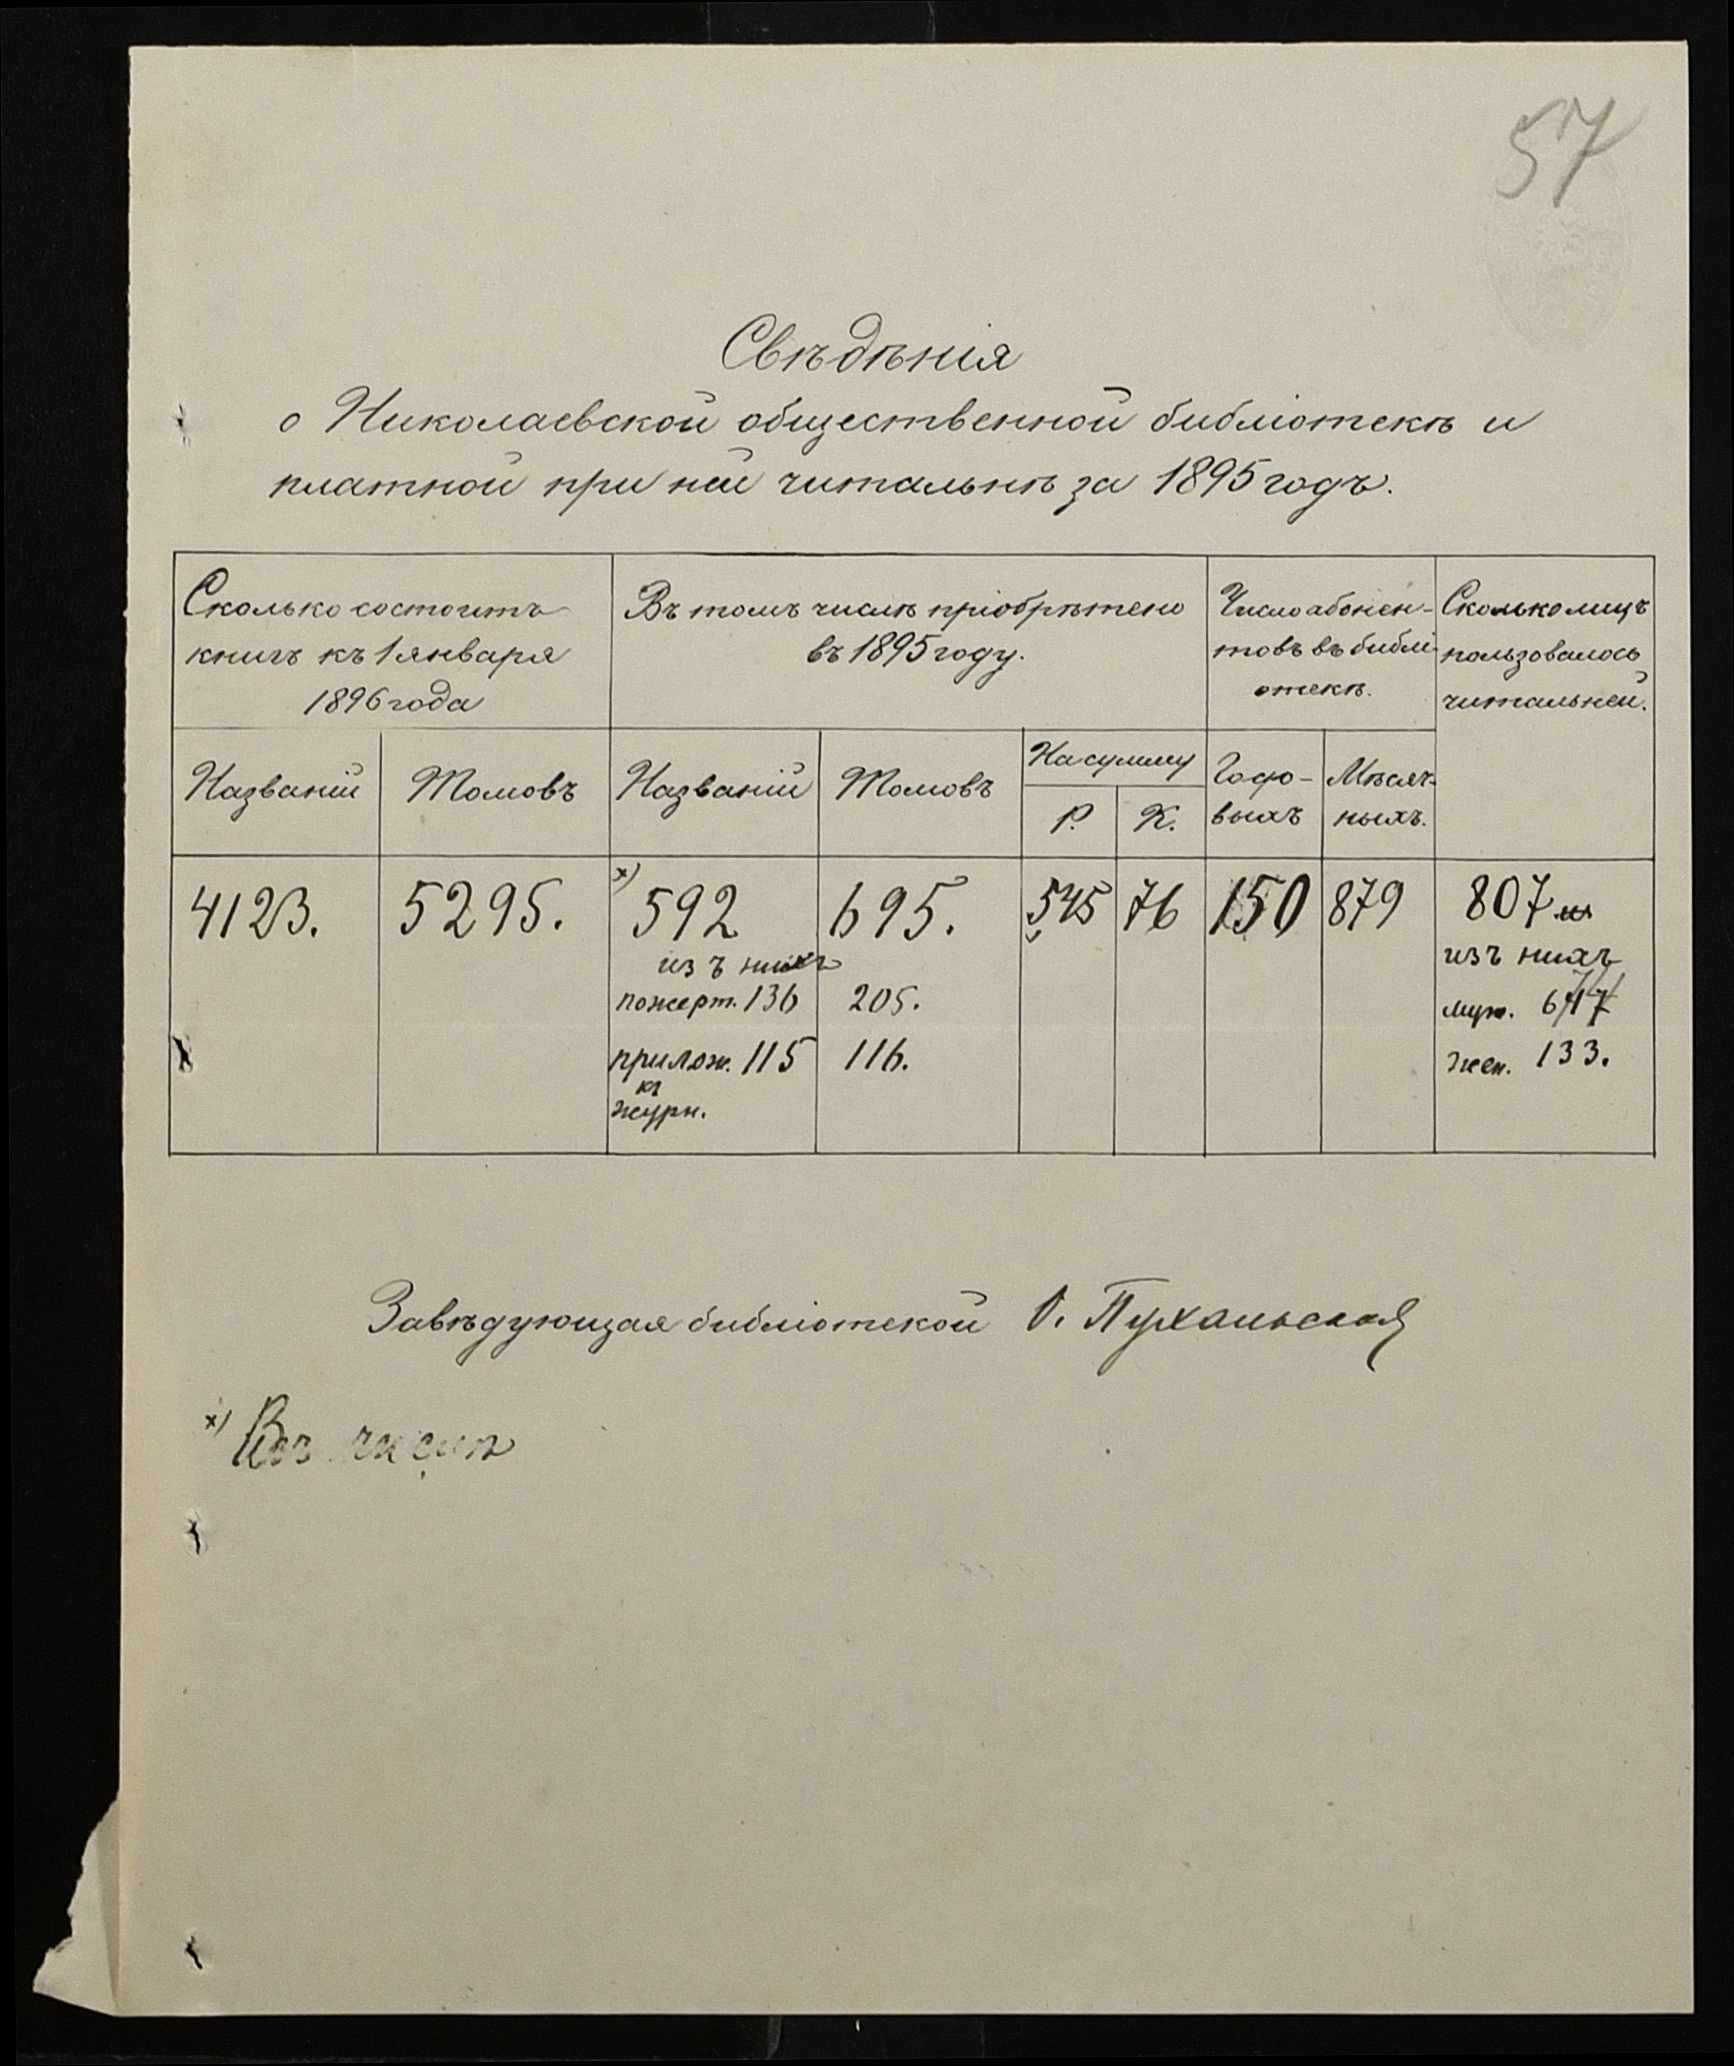 57
Свѣдѣнія
о Николаевской общественной библіотекѣ и
платной при ней читальнѣ за 1895 годъ.
Сколько состоитъ
книгъ къ 1 января
1896 года
Въ томъ числѣ пріобрѣтено
въ 1895 году.
Число абонен-
товъ въ библі-
отекѣ.
Сколько лицъ
пользовалось
читальней.
Названій
Томовъ
Названій
Томовъ
На сумму
Р.
К.
Годо-
выхъ
Мѣсяч-
ныхъ.
4123.
5295.
х) 592
695.
545
76
150
879
807
изъ нихъ
пожерт. 136
205.
прилож. 115
116.
къ
журн.
изъ нихъ
муж.
жен. 133.
Завѣдующая библіотекой О. Пухальская
х)